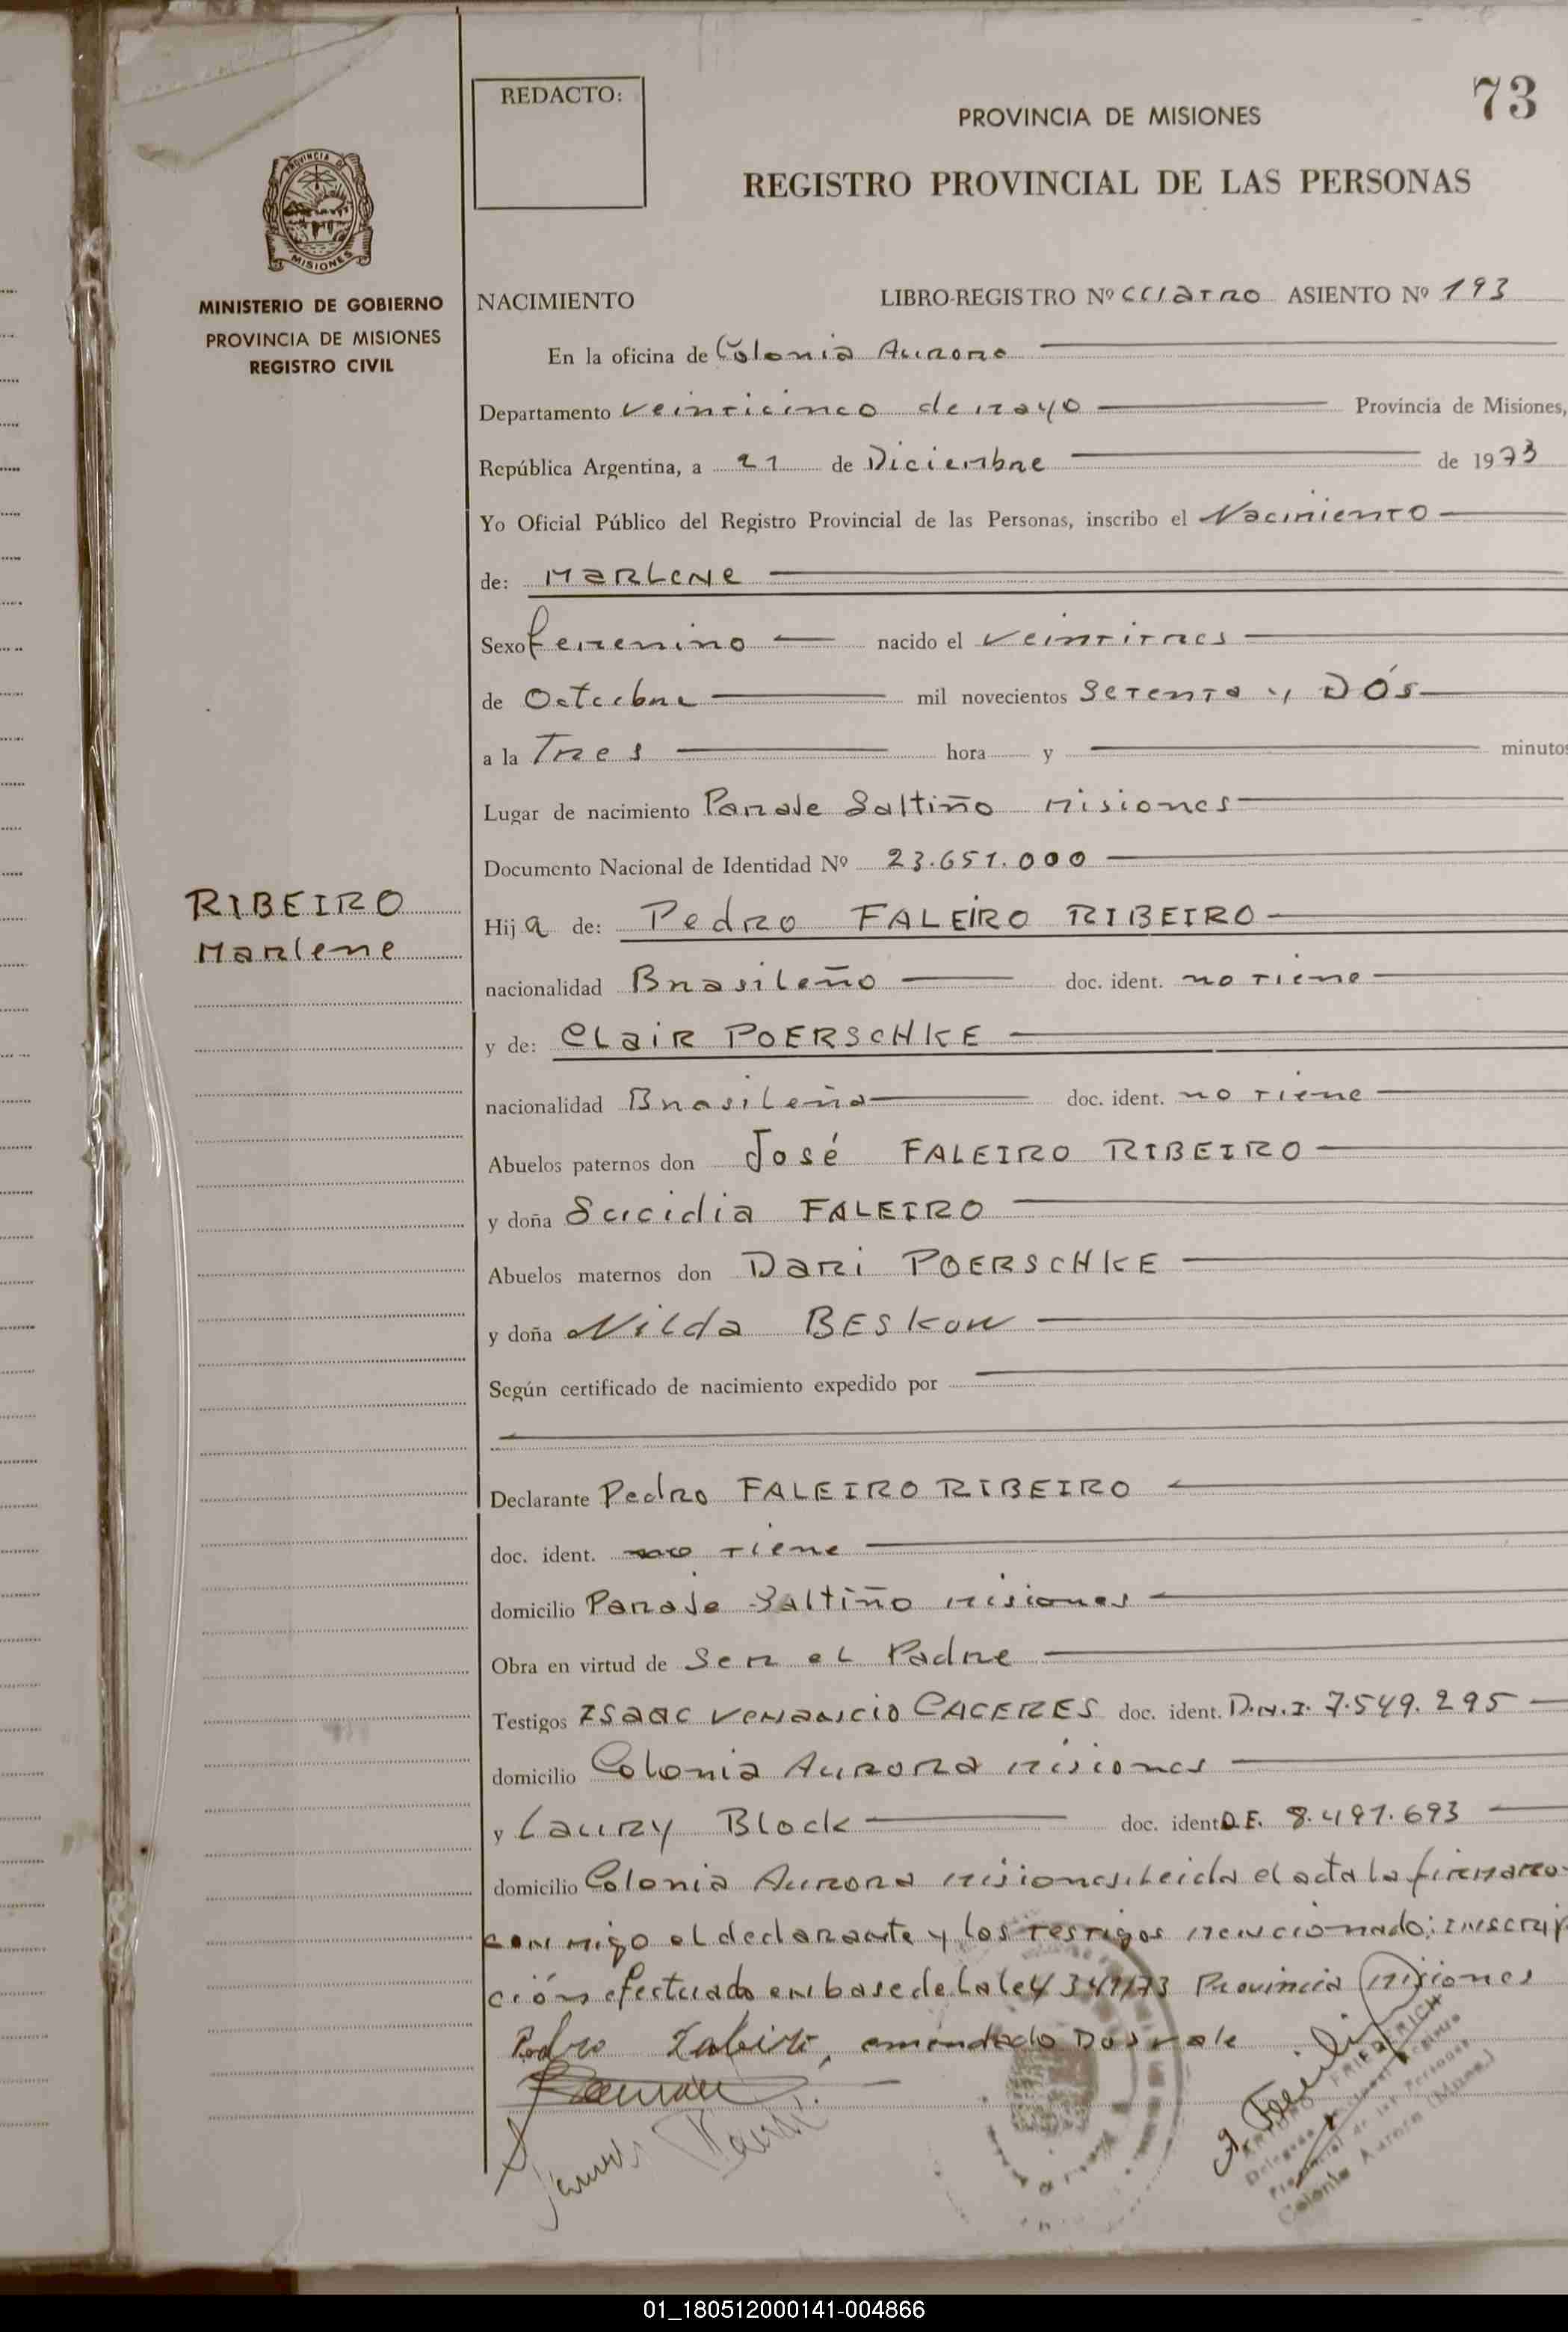 73
REDACTO:
PROVINCIA DE MISIONES
REGISTRO PROVINCIAL DE LAS PERSONAS
PROVINCIA DE
MISIONES
MINISTERIO DE GOBIERNO
PROVINCIA DE MISIONES
REGISTRO CIVIL
NACIMIENTO LIBRO-REGISTRO Nº cuatro ASIENTO Nº 193
En la oficina de Colonia Aurora
Departamento veinticinco de mayo Provincia de Misiones,
República Argentina, a 21 de Diciembre de 1973
Yo Oficial Público del Registro Provincial de las Personas, inscribo el Nacimiento
de: MARLENE
Sexo femenino nacido el veintitres
de Octubre mil novecientos Setenta y DÓS
a la Tres hora y minutos
Lugar de nacimiento Paraje Saltiño misiones
Documento Nacional de Identidad Nº 23.651.000
RIBEIRO
Marlene
Hija de: Pedro FALEIRO RIBEIRO
nacionalidad Brasileño doc. ident. no tiene
y de: CLAIR POERSCHKE
nacionalidad Brasileña doc. ident. no tiene
Abuelos paternos don José FALEIRO RIBEIRO
y doña Sucidia FALEIRO
Abuelos maternos don Dari POERSCHKE
y doña Nilda BESKOW
Según certificado de nacimiento expedido por
Declarante Pedro FALEIRO RIBEIRO
doc. ident. no tiene
domicilio Paraje Saltiño misiones
Obra en virtud de Ser el Padre
Testigos ISAAC VENANCIO CACERES doc. ident. D.N.I. 7.549.295
domicilio Colonia Aurora misiones
y Laury Block doc. ident D.E. 8.491.693
domicilio Colonia Aurora misiones. Leida el acta la firmaro-
con migo el declarante y los testigos mencionado; inscrip
ción efectuado en base de la ley 341/73 Provincia Misiones
Pedro, emendado Dos vale
ARTURO FRIEDERICH
Colonia Aurora (Mnes.)
01_180512000141-004866